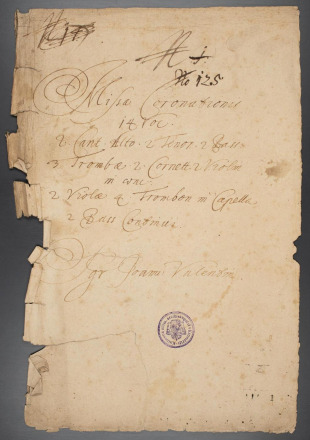 No 125
Missa Coronationis
14 voc:
2 Cant. Alto. 2 Tenor. 2 Bass.
3 Trombæ 2 Cornett. 2 Violin
in conc:
2 Violæ 4 Trombon in Capella
2 Bass Continui
Joann Valentin